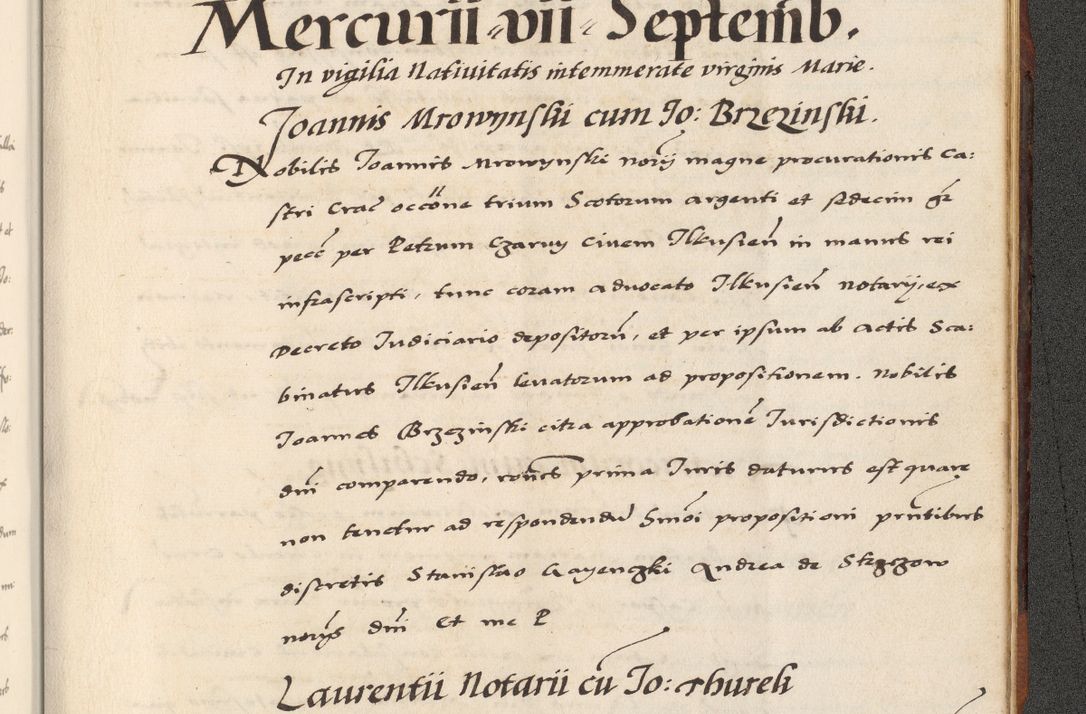 Mercurii vii Septemb.
In vigilia Natiuitatis intemmerate virginis Marie.
Joannis Mrowynski cum Jo: Brzezinski.
Nobilis Joannis Mrowynski norij magne procurationis Ca:
stri Crac occõne trium Scotorum argenti et sedecim gr
pecc per Petrum Czarny Civem Ilkusień in manus rei
infrascripti, tunc coram advocato Ilkusień notarij, ex
Decreto Iudiciario depositorũ, et per ipsum ab actis Sca:
binatus Ilkusień levatorum ad propositionem. Nobilis
Joannes Brzezinski citra approbationẽ Iurisdictionis
dni comparendo, rones prima Iuris daturus est quare
non tenetur ad respondendũ Smoi propositioni prntibus
discretis Stanislao Gayenczki Andrea de Strzezow
norijs dni Et me P
Laurentii Notarii cũ Jo: Thureli